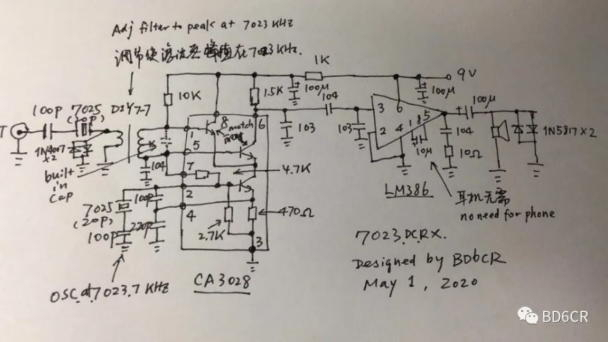 Adj filter to peak at 7023 KHz
调节使滤波器峰值在7023KHz.
1K
9V
100p
7025
(20p)
DIY7-7
10K
1.5K
100μ
104
100μ
100μ
T
1N4007
×2
built
in
cap
104
8
match
6
5
7
2
4
3
103
103
3
6
2
4
1
8
5
10μ
104
10Ω
1N5817×2
LM386
耳机无需
no need for phone
4.7K
7025
(20p)
100p
100p
220p
2.7K
470Ω
OSC at 7023.7 KHz
CA3028
7023 DCRX.
Designed by BD6CR
May 1, 2020
BD6CR